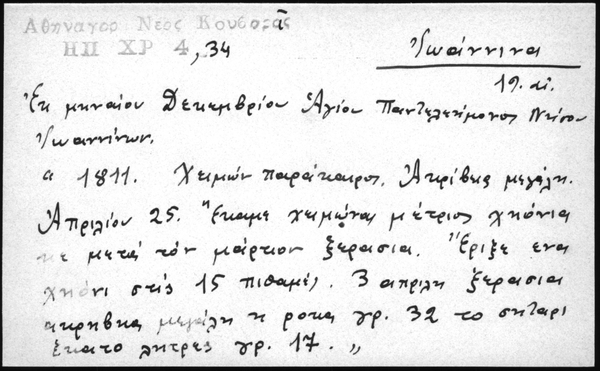 Αθηναγορ Νεος Κουβαρᾶς
ΗΠ ΧΡ 4, 34
Ἰωάννινα
19. αἰ.
Ἐκ μηναίου Δεκεμβρίου Ἁγίου Παντελεήμονος Νήσου
Ἰωαννίνων.
« 1811. Χειμών παράκαιρος. Ἀκρίβεια μεγάλη.
Ἀπριλίου 25. "Εκαμε χειμῶνα μέτριος χηόνια
κε μετά τόν μάρτιον ξερασια. "Εριξε ενα
χηόνι στίς 15 πιθαμές. 3 απρίλη ξερασια
ακρηβηα μεγάλη η ροκα γρ. 32 το σηταρι
ἑκατο λητρες γρ. 17. »